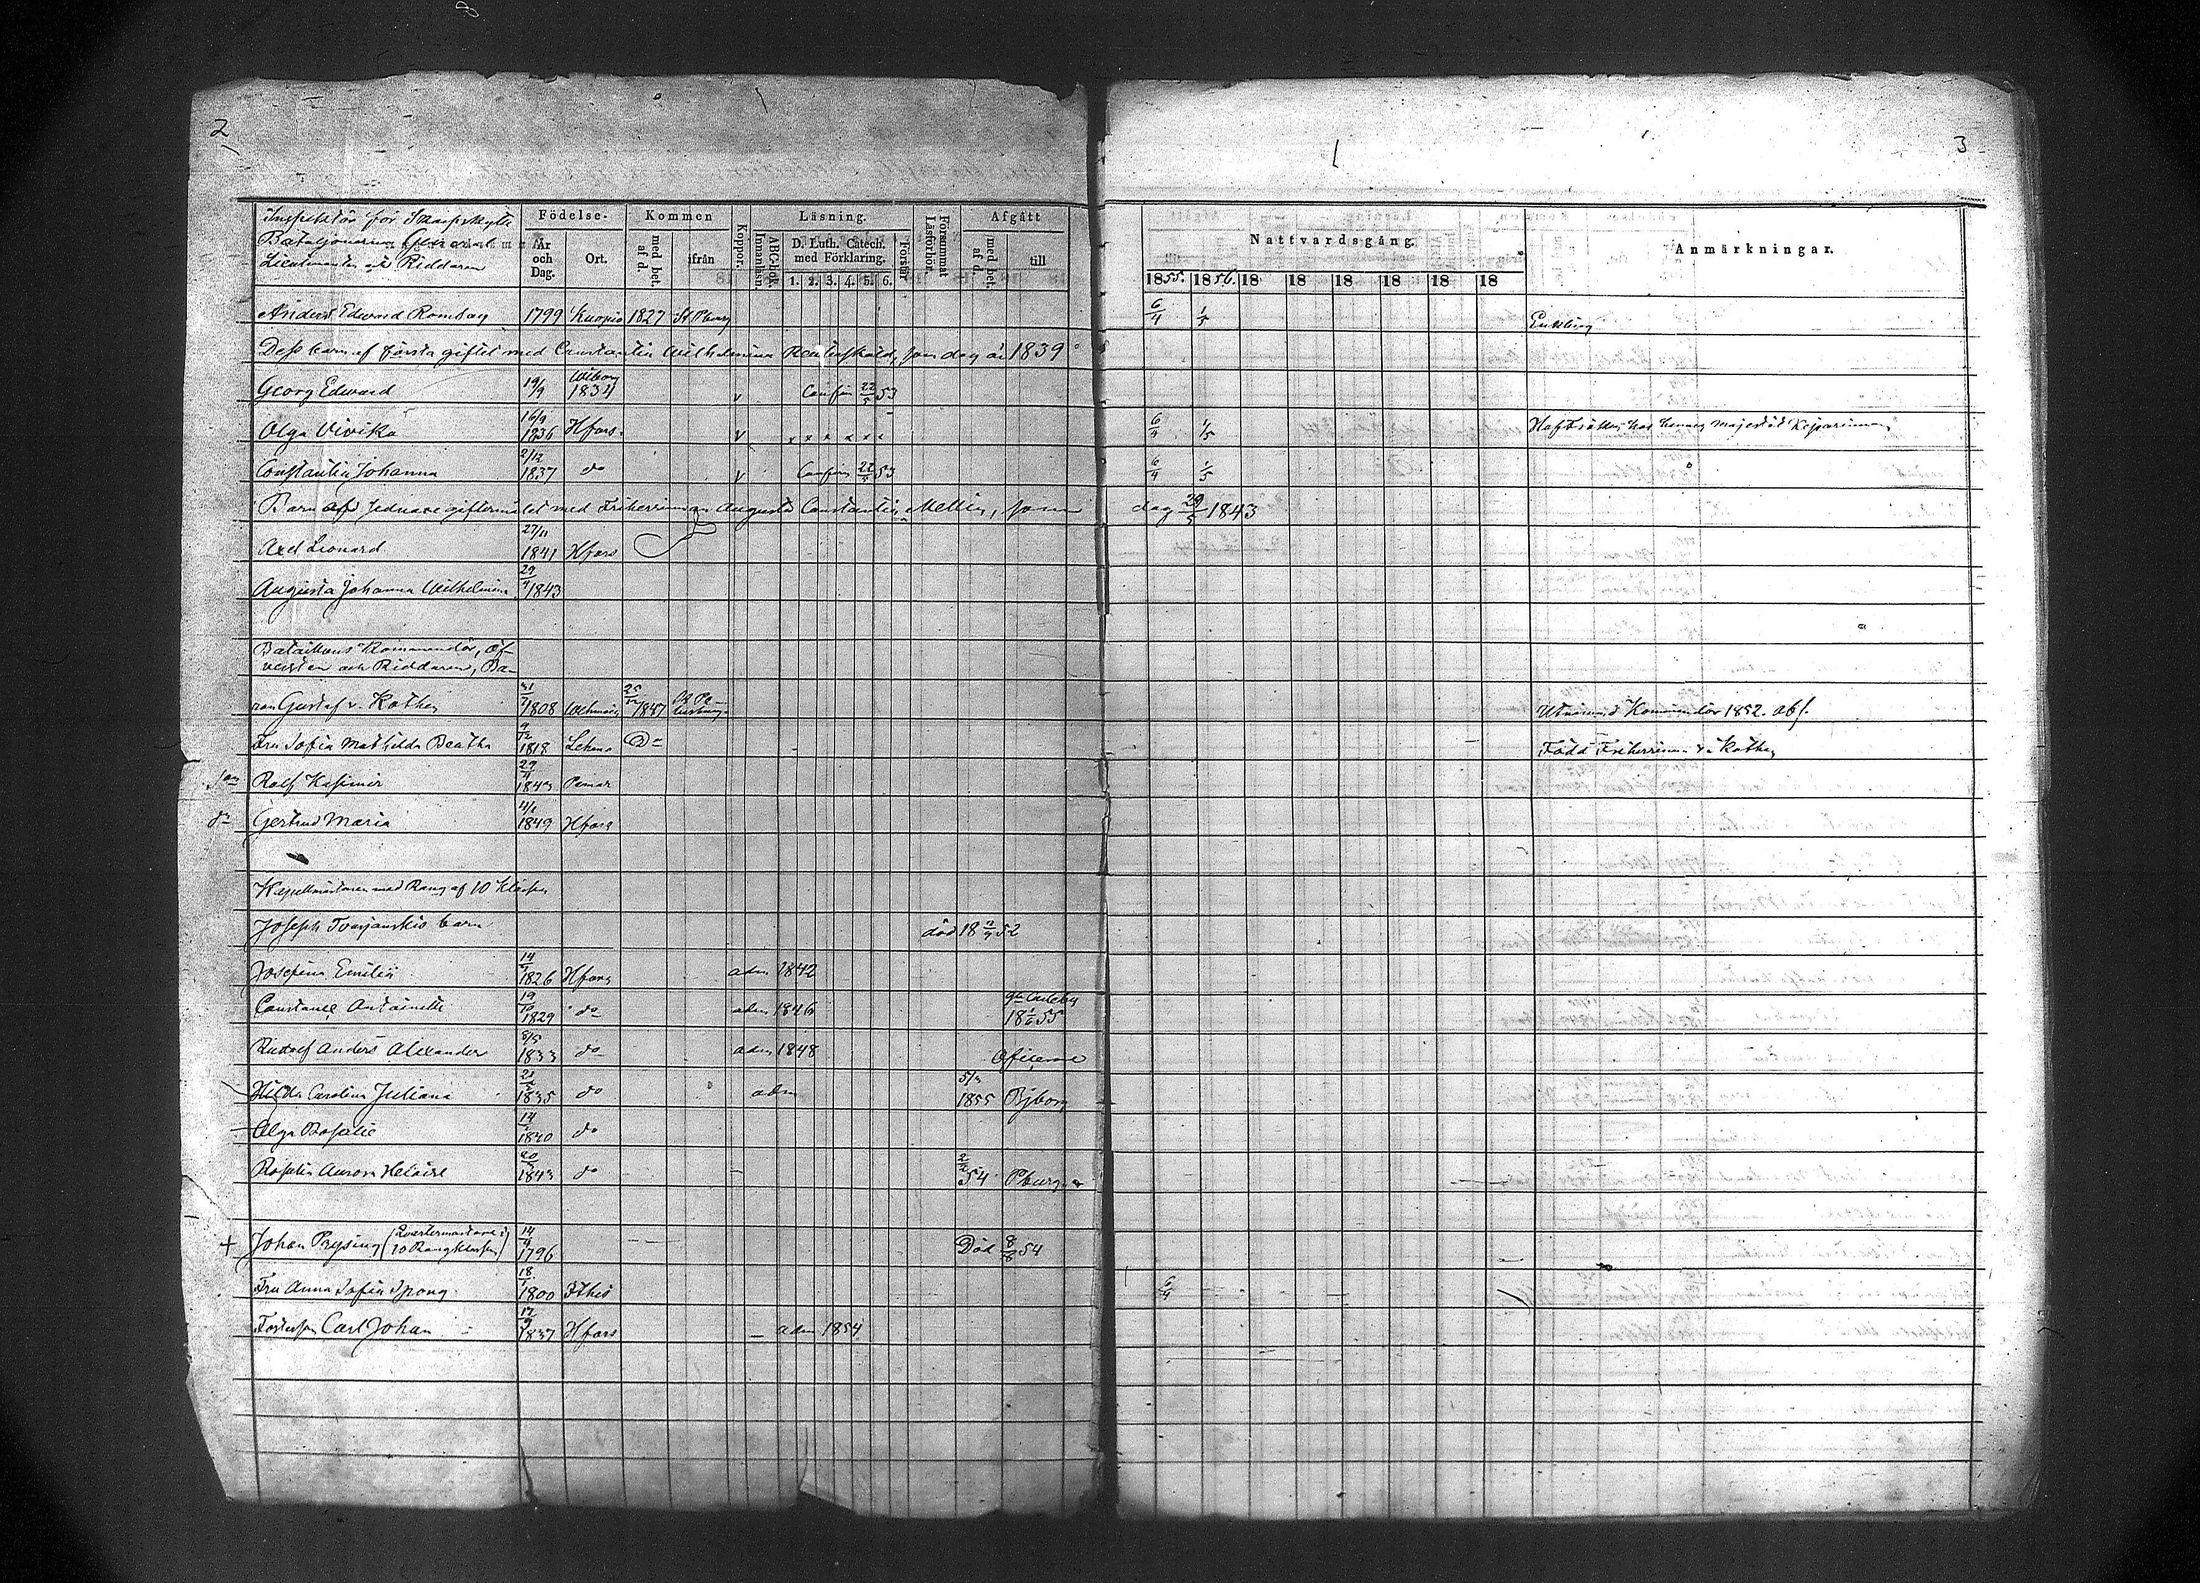 8
2
Inspektör för Skarpskytte
Bataljonerna, General
Lieutnanten och Riddaren
Födelse-
År och Dag.
Ort.
Kommen
med bet. af d.
ifrån
Koppor.
Läsning.
ABC-bok. Innanläsn.
D. Luth. Catech. med Förklaring.
1. 2. 3. 4. 5. 6.
Förstår
Försummat Läsförhör.
Afgått
med bet. af d.
till
Anders Edvard Ramsay 1799 Kuopio 1827 St Pburg
Dess barn af första giftet med Constantia Wilhelmina Reutersköld, som dog år 1839
Georg Edward 19/9 Wiborg 1834 v Confirm 22/5 53
Olga Vivika 16/9 1836 Hfors. v x x x x x x
Constantia Johanna 2/12 1837 do v Confirm 22/5 53
Barn af sednare giftermålet med Friherrinnan Augusta Constantia Mellin, som
Axel Leonard 27/11 1841 Hfors
Augusta Johanna Wilhelmina 29/4 1843
Bataillons Kommendör, Öf-
versten och Riddaren, Ba-
ron Gustaf v. Kothen 31/7 1808 1847 St Pe-tersburg
Fru Sofia Mathilda Beatha 9/12 1818 Lekno
son Rolf Kasimir 29/4 1843 Pemar
dr Gertrud Maria 4/1 1849 Hfors
Kapellmästaren med Rang af 10 Klassen
Joseph Tvarjanskis barn död 18 52
Josefina Emilia 14 1826 Hfors adm 1842
Constance Antoinette 19/10 1829 do adm 1846 Gla Carleby 18 55
Rudolf Anders Alexander 8/5 1833 do adm 1848 Officerare
Hilda Carolina Juliana 1835 do adm 5/3 1855 Bjborg
Olga Rosalie 14 1840 do
Rosalia Aurora Helaire 20 1843 do 54 Pburg
+ Johan Prysing (Qvartermästare i 10 Rangklassen) 14/4 1796 Död 8/8 54
Fru Anna Sofia Spong 18/1 1800 Ithis
Fosterson Carl Johan 12/9 1837 Hfors adm 1854
3
Nattvardsgång.
Anmärkningar.
1855. 1856. 18 18 18 18 18 18
6/4 1/5 Enkling
6/4 1/5 Hoffröken hos Hennes Majestät Kejsarinnan
6/4 1/5
dog 29/5 1843
Utnämnd Kommendör 1852. afs.
Född Friherrinna v. Kothen
6/4